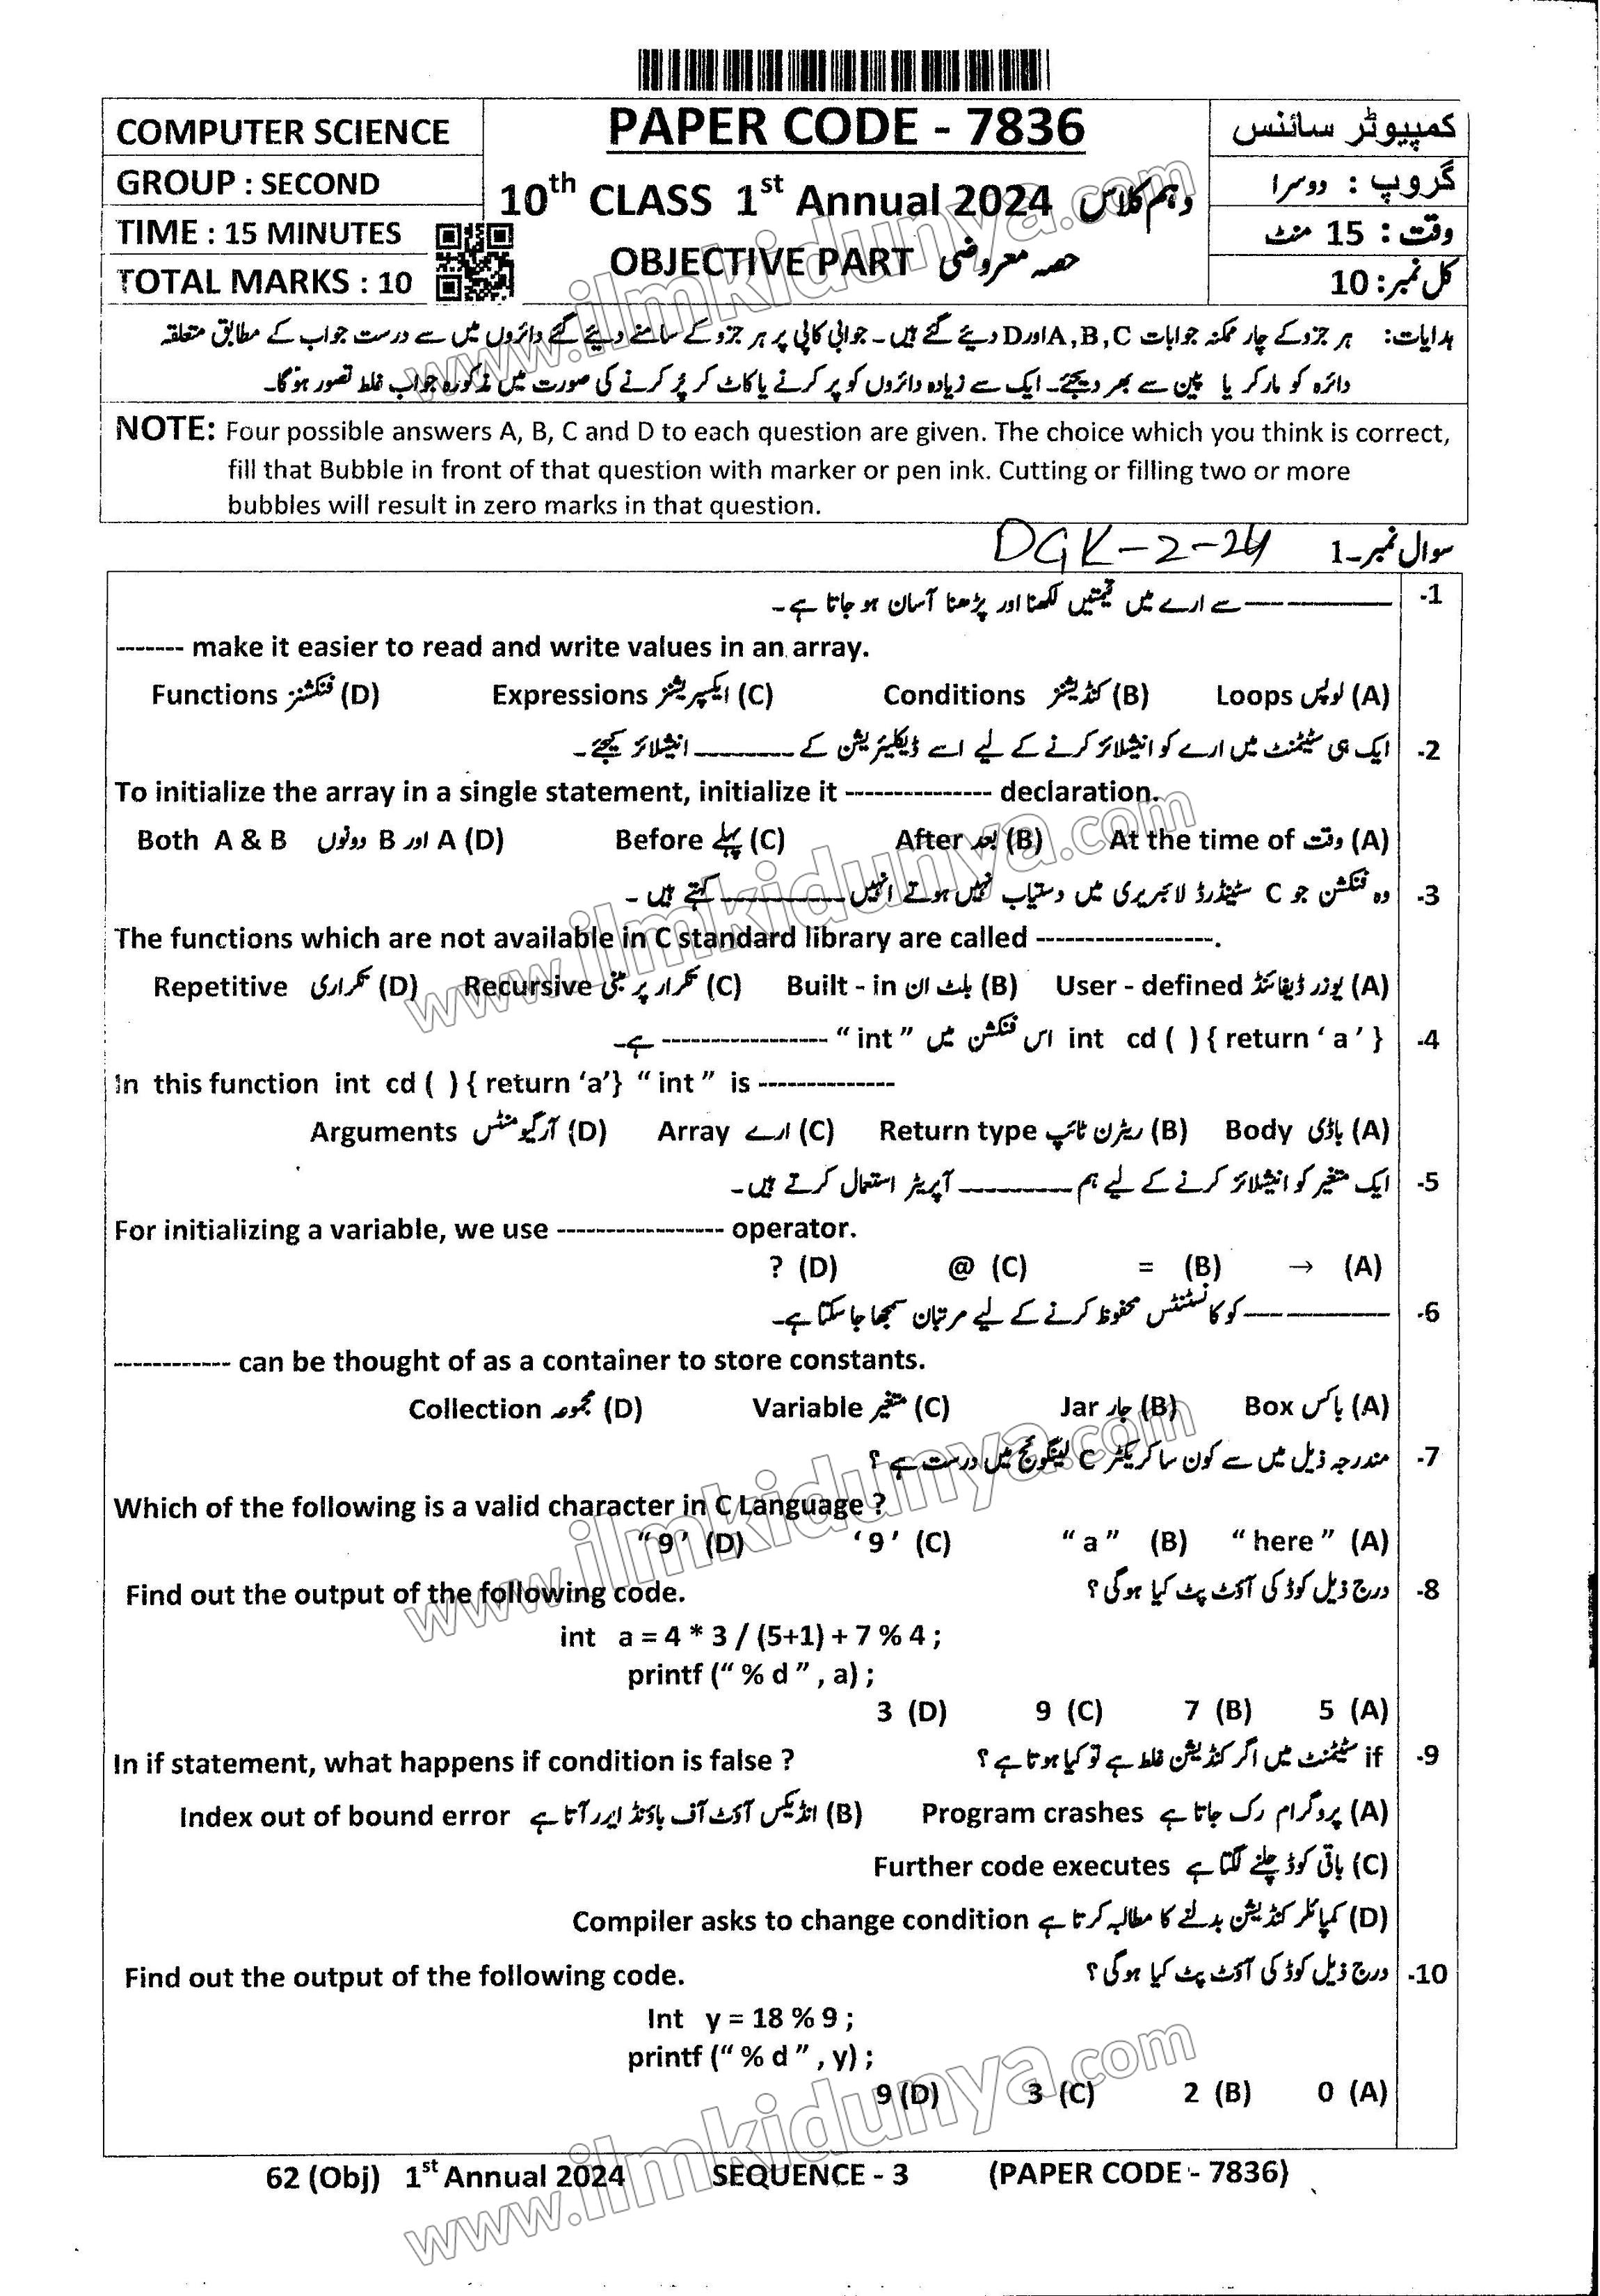 COMPUTER SCIENCE
GROUP : SECOND
TIME : 15 MINUTES
TOTAL MARKS : 10
PAPER CODE - 7836
10th CLASS 1st Annual 2024 دہم کلاس
OBJECTIVE PART حصہ معروضی
کمپیوٹر سائنس
گروپ : دوسرا
وقت : 15 منٹ
کل نمبر: 10
ہدایات: ہر جزو کے چار ممکنہ جوابات A, B, C اور D دیئے گئے ہیں۔ جوابی کاپی پر ہر جزو کے سامنے دیئے گئے دائروں میں سے درست جواب کے مطابق متعلقہ
دائرہ کو مارکر یا پین سے بھر دیجئے۔ ایک سے زیادہ دائروں کو پر کرنے یا کاٹ کر پُر کرنے کی صورت میں مذکورہ جواب غلط تصور ہوگا۔
NOTE: Four possible answers A, B, C and D to each question are given. The choice which you think is correct,
fill that Bubble in front of that question with marker or pen ink. Cutting or filling two or more
bubbles will result in zero marks in that question.
DGK-2-24 سوال نمبر۔1
-1 ------------ سے ارے میں قیمتیں لکھنا اور پڑھنا آسان ہو جاتا ہے۔
------- make it easier to read and write values in an array.
(A) لوپس Loops (B) کنڈیشنز Conditions (C) ایکسپریشنز Expressions (D) فنکشنز Functions
-2 ایک ہی سٹیٹمنٹ میں ارے کو انیشلائز کرنے کے لیے اسے ڈیکلیئریشن کے ---------- انیشلائز کیجئے۔
To initialize the array in a single statement, initialize it --------------- declaration.
(A) وقت At the time of (B) بعد After (C) پہلے Before (D) A اور B دونوں Both A & B
-3 وہ فنکشن جو C سٹینڈرڈ لائبریری میں دستیاب نہیں ہوتے انہیں ------------ کہتے ہیں۔
The functions which are not available in C standard library are called ------------------.
(A) یوزر ڈیفائنڈ User - defined (B) بلٹ ان Built - in (C) تکرار پر مبنی Recursive (D) تکراری Repetitive
-4 int cd ( ) { return ‘ a ’ } اس فنکشن میں “ int ” ----------------- ہے۔
In this function int cd ( ) { return ‘a’} “ int ” is --------------
(A) باڈی Body (B) ریٹرن ٹائپ Return type (C) ارے Array (D) آرگیومنٹس Arguments
-5 ایک متغیر کو انیشلائز کرنے کے لیے ہم ------------ آپریٹر استعمال کرتے ہیں۔
For initializing a variable, we use ----------------- operator.
(A) → (B) = (C) @ (D) ?
-6 ------------ کو کانسٹنٹس محفوظ کرنے کے لیے مرتبان سمجھا جا سکتا ہے۔
------------ can be thought of as a container to store constants.
(A) باکس Box (B) جار Jar (C) متغیر Variable (D) مجموعہ Collection
-7 مندرجہ ذیل میں سے کون سا کریکٹر C لینگوئج میں درست ہے ؟
Which of the following is a valid character in C Language ?
(A) “ here ” (B) “ a ” (C) ‘ 9 ’ (D) “ 9 ’
-8 درج ذیل کوڈ کی آؤٹ پٹ کیا ہوگی ؟ Find out the output of the following code.
int a = 4 * 3 / (5+1) + 7 % 4 ;
printf (“ % d ” , a) ;
(A) 5 (B) 7 (C) 9 (D) 3
-9 if سٹیٹمنٹ میں اگر کنڈیشن غلط ہے تو کیا ہوتا ہے ؟ In if statement, what happens if condition is false ?
(A) پروگرام رک جاتا ہے Program crashes (B) انڈیکس آؤٹ آف باؤنڈ ایرر آتا ہے Index out of bound error
(C) باقی کوڈ چلنے لگتا ہے Further code executes
(D) کمپائلر کنڈیشن بدلنے کا مطالبہ کرتا ہے Compiler asks to change condition
-10 درج ذیل کوڈ کی آؤٹ پٹ کیا ہوگی ؟ Find out the output of the following code.
Int y = 18 % 9 ;
printf (“ % d ” , y) ;
(A) 0 (B) 2 (C) 3 (D) 9
62 (Obj) 1st Annual 2024 SEQUENCE - 3 (PAPER CODE - 7836)
www.ilmkidunya.com
www.ilmkidunya.com
www.ilmkidunya.com
www.ilmkidunya.com